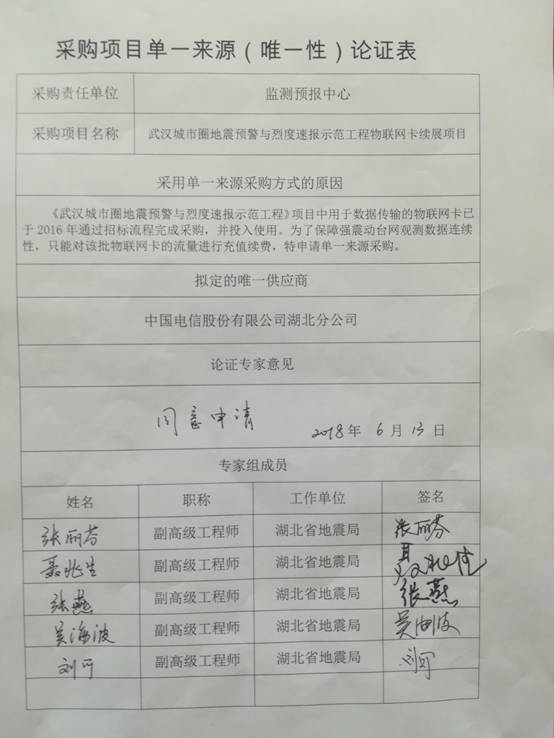 采购项目单一来源（唯一性）论证表
采购责任单位 监测预报中心
采购项目名称 武汉城市圈地震预警与烈度速报示范工程物联网卡续展项目
采用单一来源采购方式的原因
《武汉城市圈地震预警与烈度速报示范工程》项目中用于数据传输的物联网卡已
于 2016 年通过招标流程完成采购，并投入使用。为了保障强震动台网观测数据连续
性，只能对该批物联网卡的流量进行充值续费，特申请单一来源采购。
拟定的唯一供应商
中国电信股份有限公司湖北分公司
论证专家意见
同意申请 2018年 6月 13日
专家组成员
姓名 职称 工作单位 签名
张丽芬 副高级工程师 湖北省地震局 张丽芬
聂兆生 副高级工程师 湖北省地震局 聂兆生
张燕 副高级工程师 湖北省地震局 张燕
吴海波 副高级工程师 湖北省地震局 吴海波
刘可 副高级工程师 湖北省地震局 刘可